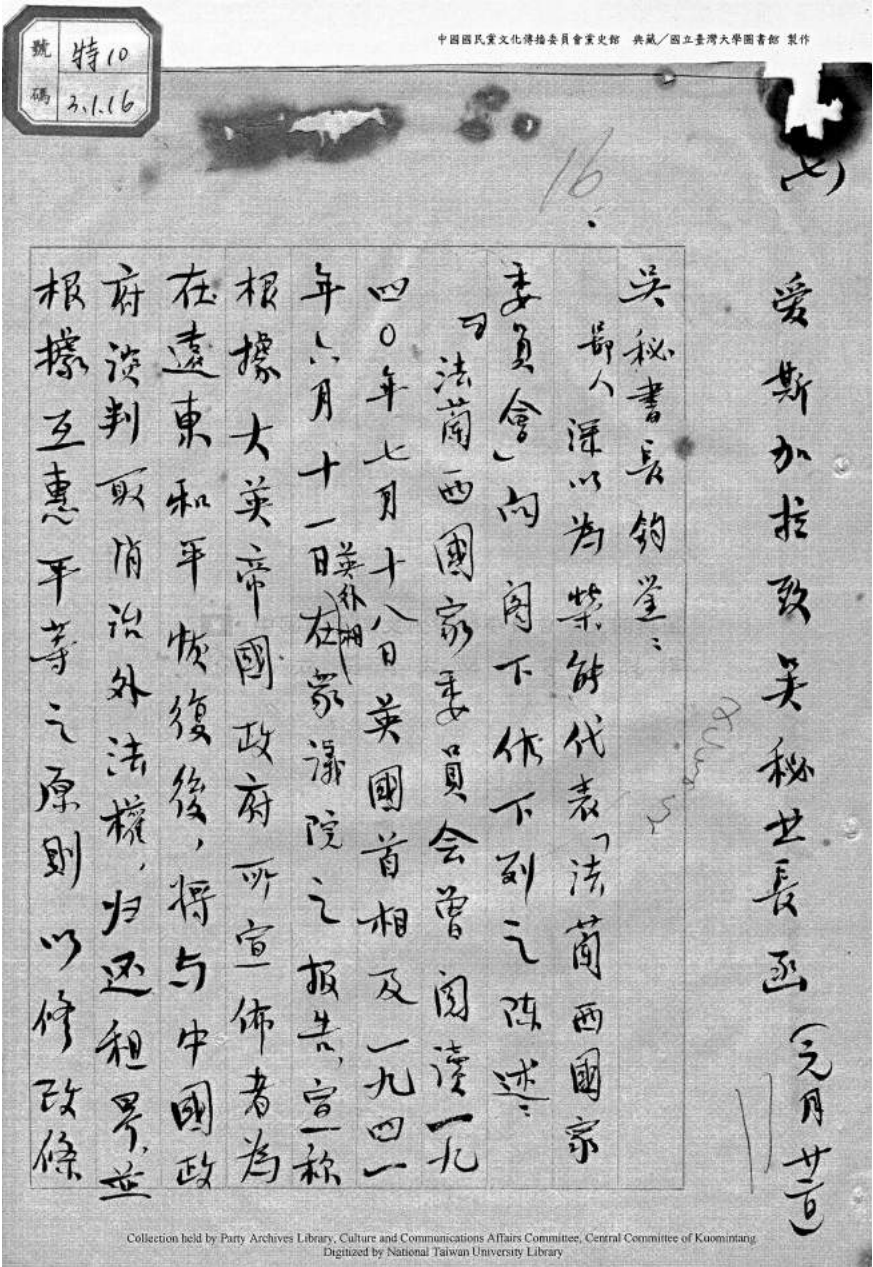 號碼 特10 3.1.16
中國國民黨文化傳播委員會黨史館 典藏/國立臺灣大學圖書館 製作
16
(七)
愛斯加拉致吴秘书長函(元月廿一日)
吴秘書長鈞鉴:
鄙人深以為榮,能代表「法蘭西國家
委員會」向 閣下作下列之陈述:
「法蘭西國家委員会曾閱讀一九
四〇年七月十八日英國首相及一九四一
年六月十一日英外相在眾議院之报告,宣称
根據大英帝國政府所宣佈者為
在遠東和平恢復後,將与中國政
府談判取消治外法權,归还租界,並
根據互惠平等之原則以修改條
Collection held by Party Archives Library, Culture and Communications Affairs Committee, Central Committee of Kuomintang
Digitized by National Taiwan University Library